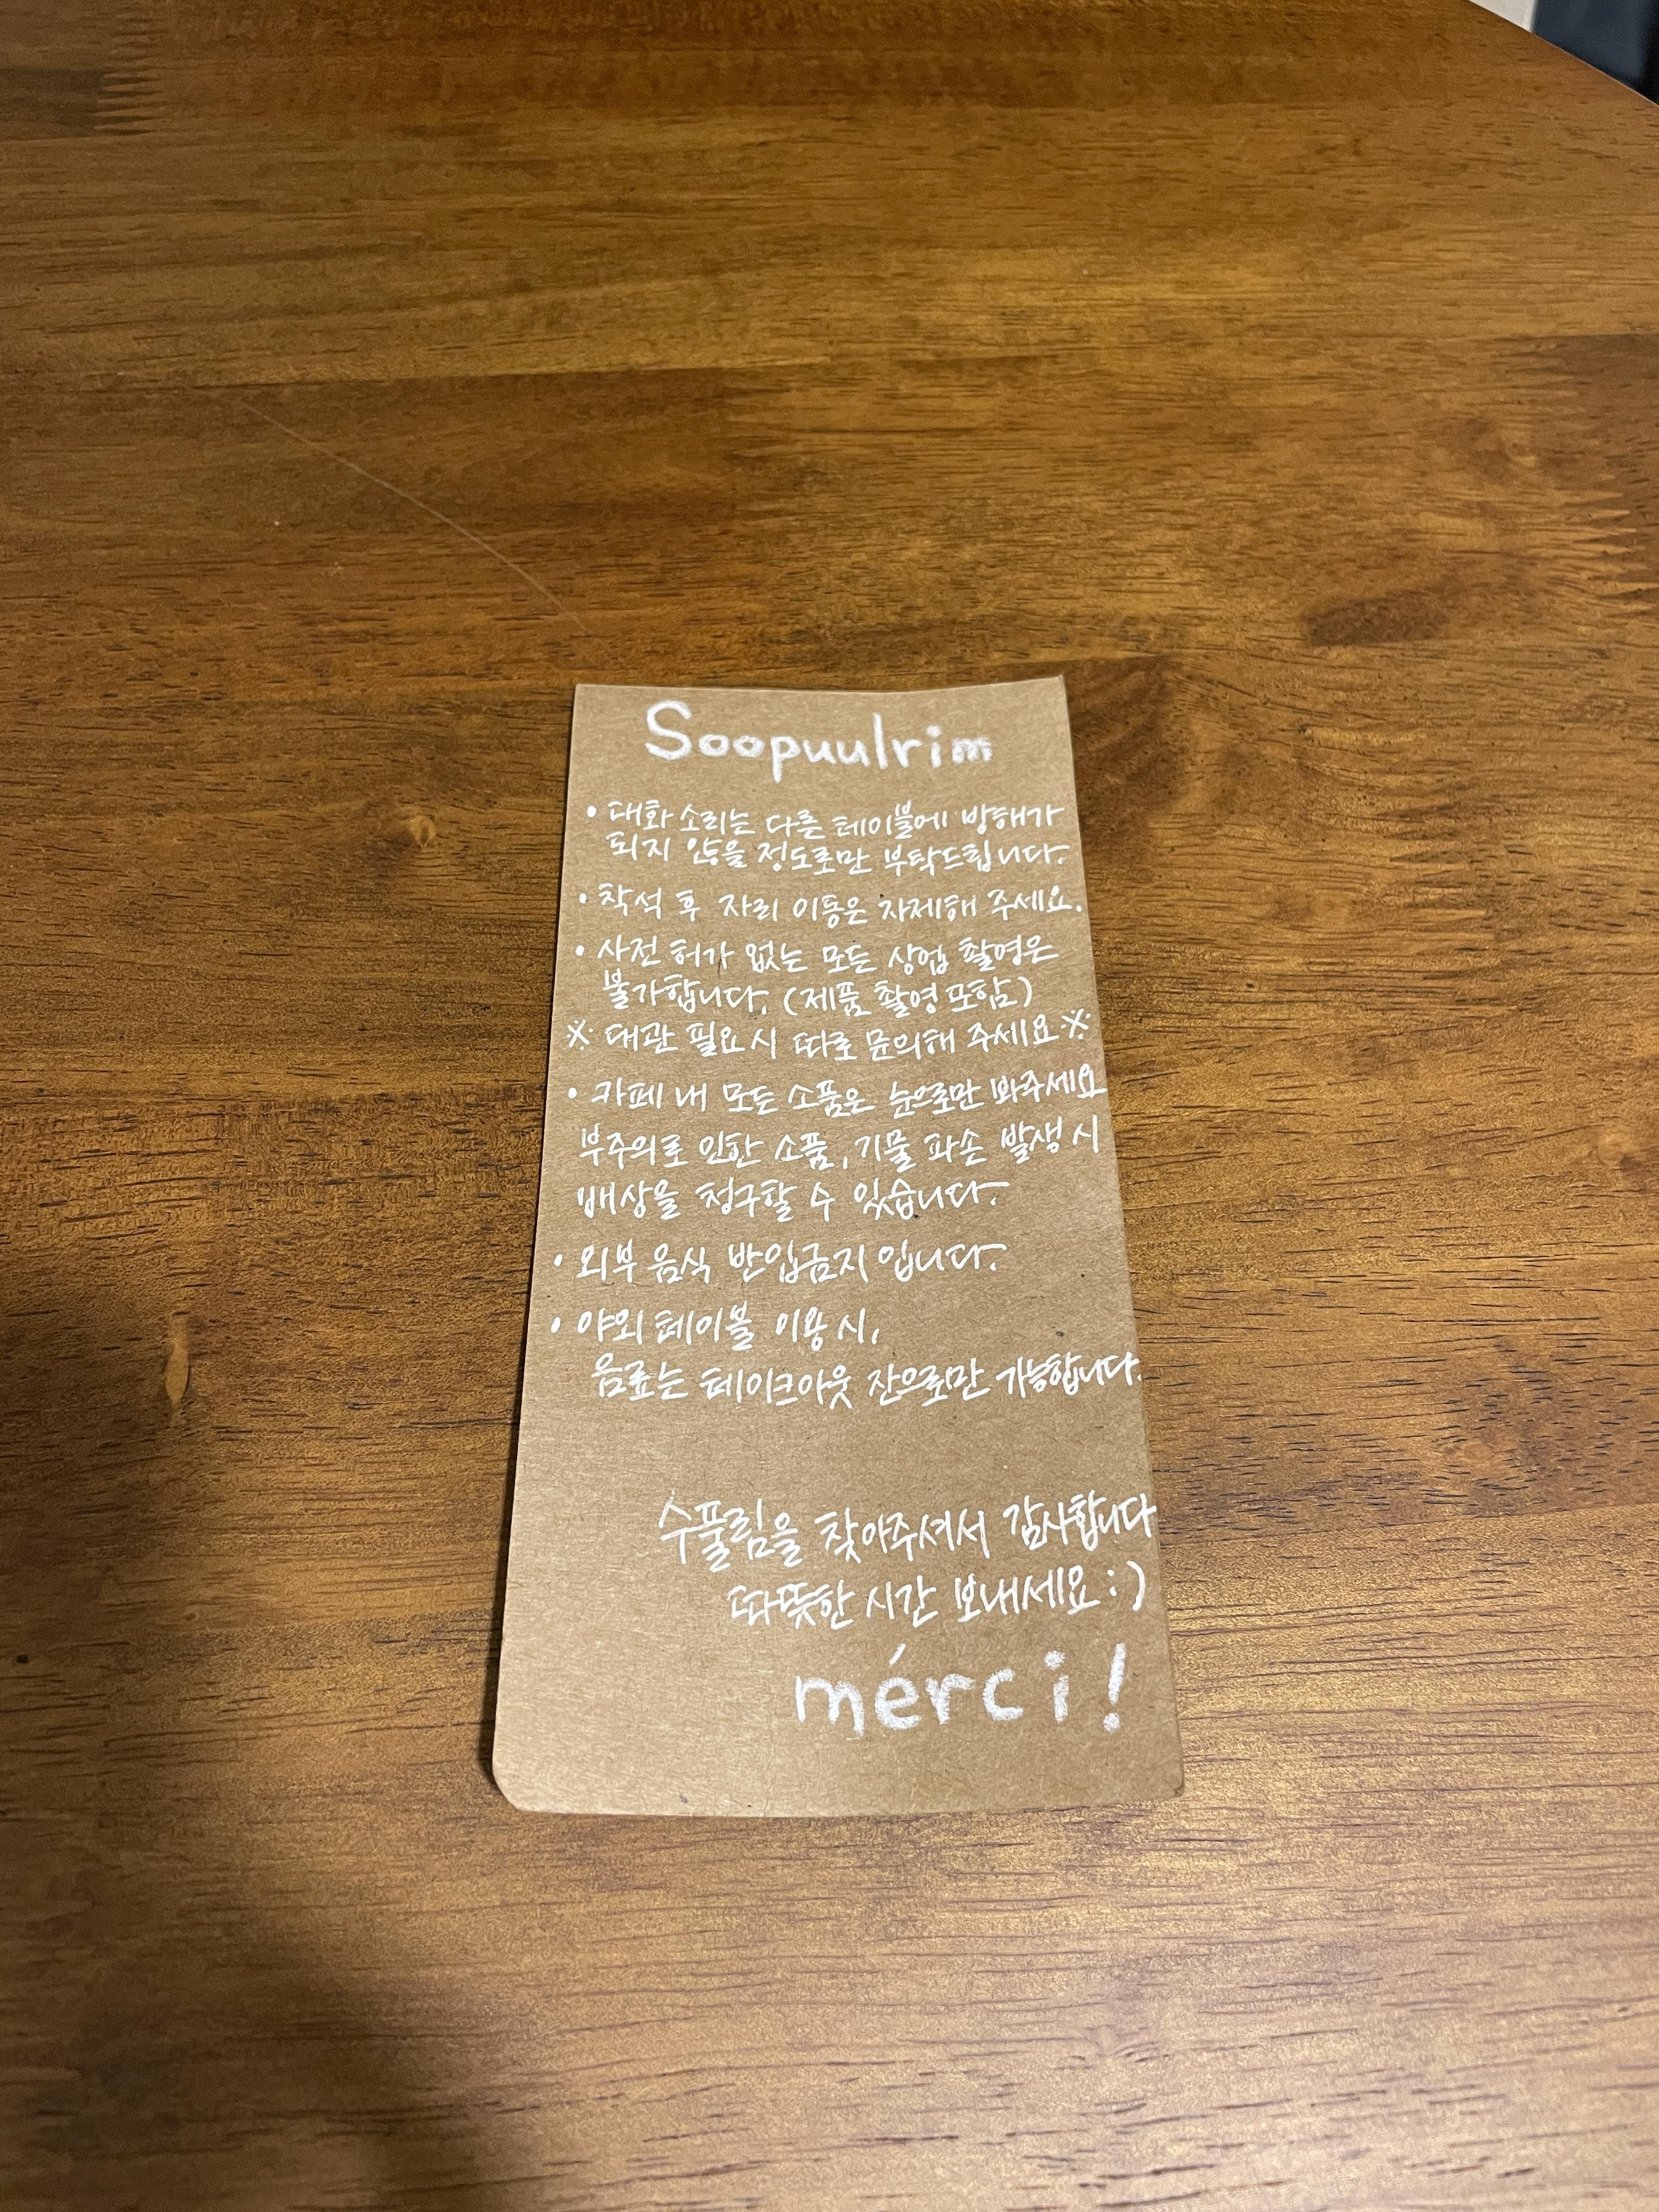 Soopuulrim
• 대화 소리는 다른 테이블에 방해가
되지 않을 정도로만 부탁드립니다.
• 착석 후 자리 이동은 자제해 주세요.
• 사전 허가 없는 모든 상업 촬영은
불가합니다. (제품 촬영 포함)
※ 대관 필요 시 따로 문의해 주세요 ※
• 카페 내 모든 소품은 눈으로만 봐주세요
부주의로 인한 소품, 기물 파손 발생 시
배상을 청구할 수 있습니다.
• 외부 음식 반입금지 입니다.
• 야외 테이블 이용 시,
음료는 테이크아웃 잔으로만 가능합니다.
수풀림을 찾아주셔서 감사합니다
따뜻한 시간 보내세요 :)
mérci!